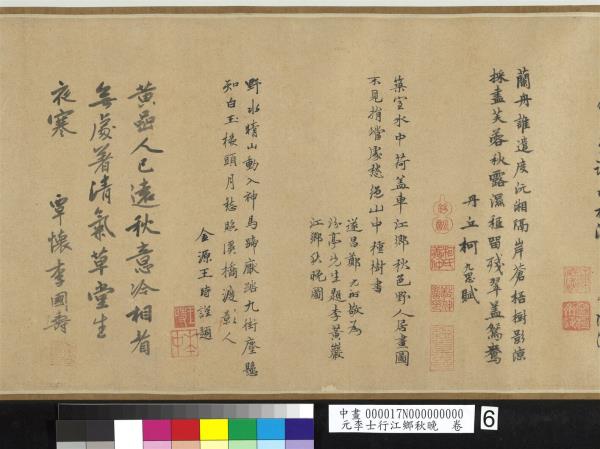 蘭舟誰遣度沅湘隔岸蒼梧樹影涼
採盡芙蓉秋露濕秪留殘翠蓋鴛鴦
丹丘柯九思賦
築室水中荷蓋車江鄉秋色野人居畫圖
不見揹
山中種樹書
遂昌鄭元祐敬為
汾亭先生題李黃巖
江鄉秋晚圖
野水晴山動入神馬蹄厭踏九街塵懸
知白玉橋頭月愁照溪橋渡影人
金源王時謹題
黃嵒人已遠秋意冷相看
無處著清氣草堂生
夜寒
覃懷李國壽
中畫 000017N000000000
元李士行江鄉秋晚 卷
6